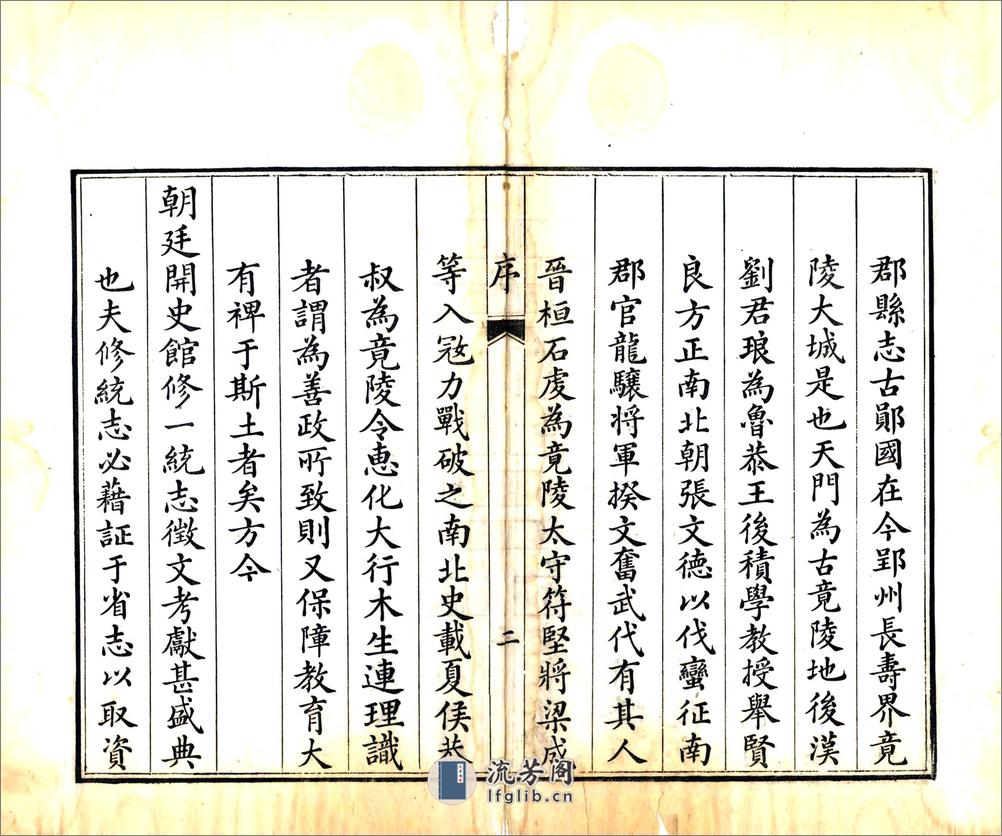 郡縣志古鄖國在今郢州長壽界竟
陵大城是也天門為古竟陵地後漢
劉君琅為魯恭王後積學教授舉賢
良方正南北朝張文德以伐蠻征南
郡官龍驤將軍揆文奮武代有其人
晉桓石虔為竟陵太守符堅將梁成
序
二
等入宼力戰破之南北史載夏侯恭
叔為竟陵令惠化大行木生連理識
者謂為善政所致則又保障教育大
有裨于斯土者矣方今
朝廷開史館修一統志徵文考獻甚盛典
也夫修統志必藉証于省志以取資
流芳阁
lfglib.cn